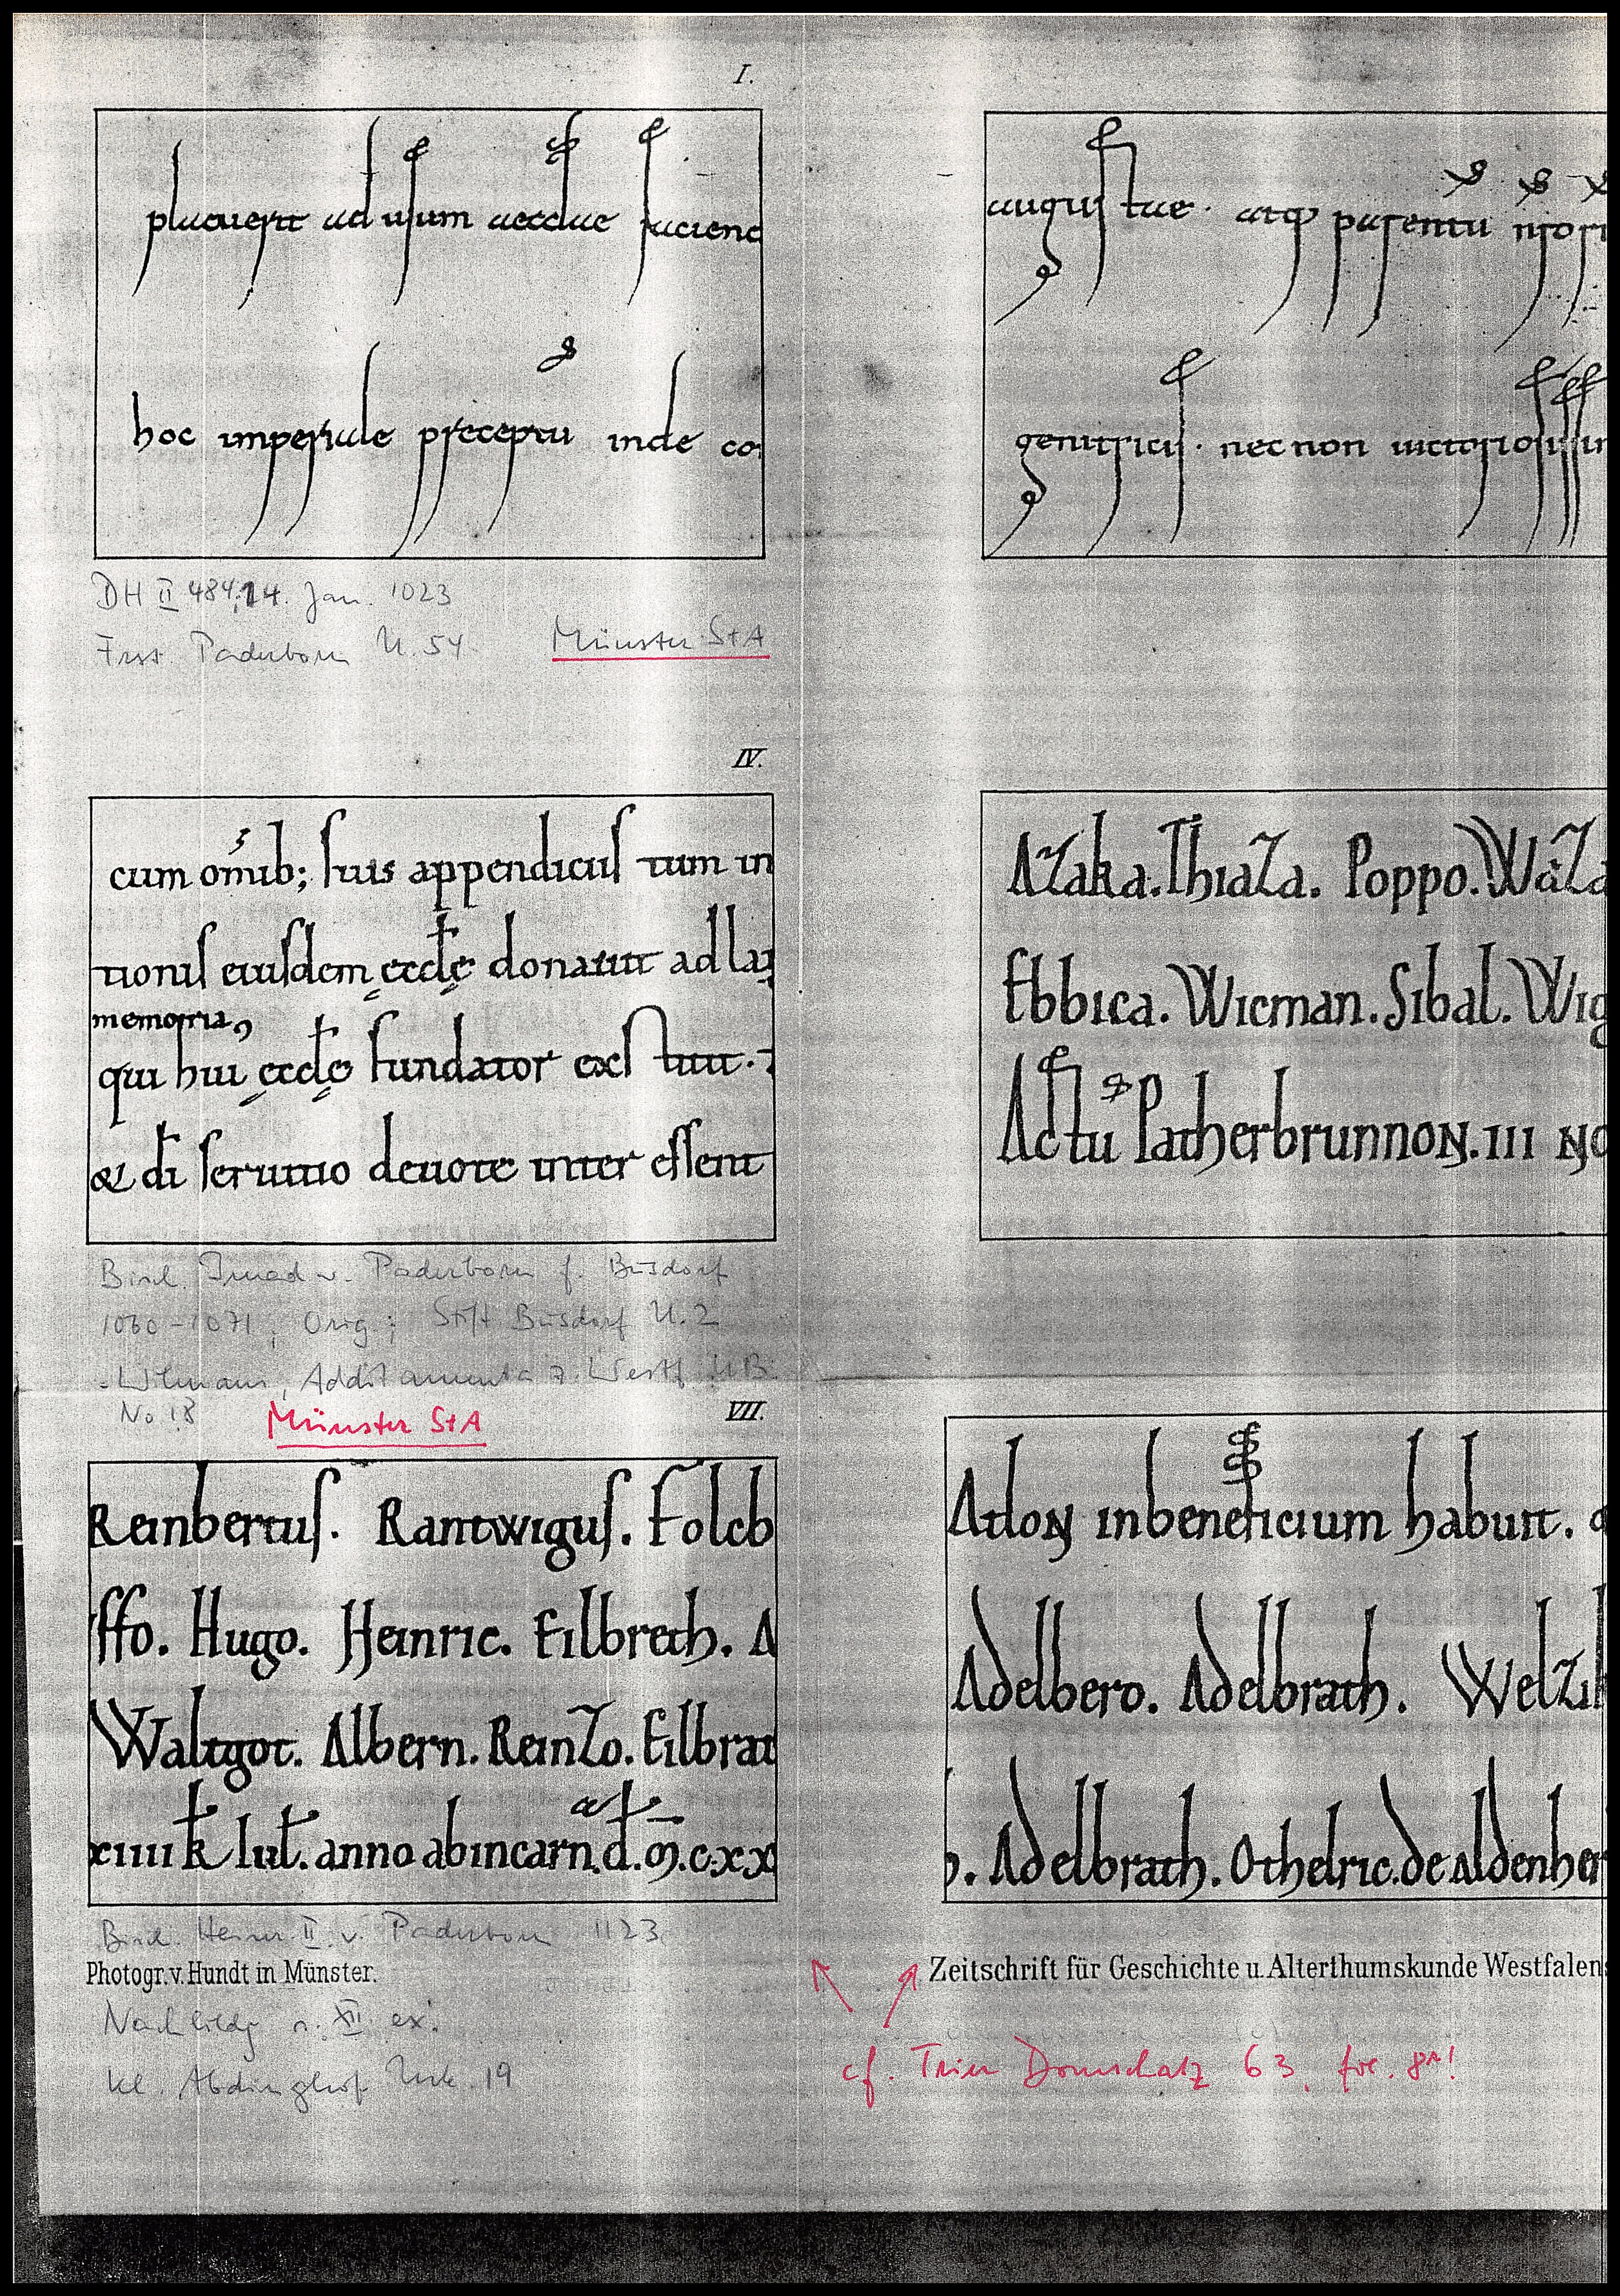 I.
placuerit ad usum aecclae faciend
hoc imperiale preceptū inde co
augustae. atq parentū nrorū
genitricis. nec non uictoriosissim
DH II 484, 14. Jan. 1023
Frst. Paderborn U. 54 Münster StA
IV.
cum omib; suis appendiciis tum in
tionis eiusdem ęccłę donauit ad la
memoria,
qui hui' ęccłę fundator exstitit.
& di seruitio deuote inter essent
Azaka. Thiaza. Poppo. Waza
Ebbica. Wicman. Sibal. Wig
Actū Patherbrunnon. III No
Bisch. Imad v. Paderborn f. Busdorf
1060-1071, Orig.; Stift Busdorf U. 2
- Wilmans, Additamenta z. Westf. UB.
No 18 Münster StA
VII.
Reinbertus. Rantwigus. Folcb
ffo. Hugo. Heinric. Eilbreth. A
Waltgot. Albern. Reinzo. Eilbrat
xiiii k iul. anno ab incarn. d. m. c. xx
Atlon in beneficium habuit.
Adelbero. Adelbrath. Welzi
. Adelbrath. Othelric. de aldenher
Bisch. Heinr. II. v. Paderborn 1123
Photogr. v. Hundt in Münster.
Zeitschrift für Geschichte u. Alterthumskunde Westfalens
Nachbildg s. XII ex.
Kl. Abdinghof Urk. 19
cf. Trier Domschatz 63,